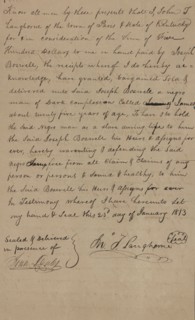 Know all men by these presents that I John T.
Langhorne of the town of           & State of Kentucky
for and in consideration of the Sum of
Hundred dollars to me in hand paid by Joseph
Boswell, the receipt whereof I do hereby
acknowledge, have granted, bargained Sold &
delivered unto Said Joseph Boswell a negro
man of dark complexion Called
about twenty five years of age. To have & to hold
the Said Negro man as a slave during life to him
the Said Joseph Boswell his Heirs & Assigns for
ever, hereby warranting & defending the Said
negro                from all claim & claims of any
person or persons & Sound & healthy, to him
the Said Boswell his Heirs & Assigns for ever
In Testimony whereof I have hereunto Set
my hand & Seal this 25th day of January
Sealed & Delivered
in presence of
Jno. T. Langhorne
Seal